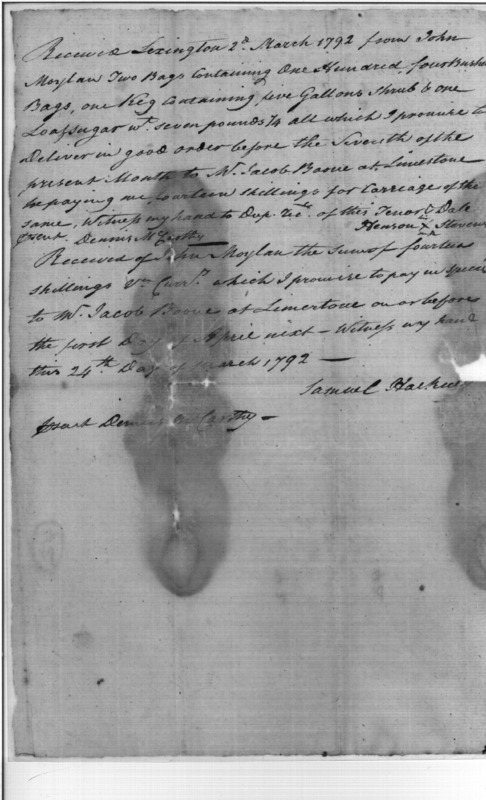 Received Lexington 2d. March 1792 from John
Moylan Two Bags Containing One Hundred, four Bushel
Bags, one Keg Containing five Gallons Shrub & one
Loaf Sugar wt. seven pounds 1/4 all which I promise to
Deliver in good order before the Seventh of the
present Month to Mr. Jacob Boone at Limestone
he paying me fourteen shillings for Carriage of the
same, Witness my hand to Dup. of this Tenor & Date
Dennis McCarthy Henson X Stevens
Received of John Moylan the Sum of fourteen
shillings Va. Curry. which I promise to pay in specie
to Mr. Jacob Boone at Limestone on or before
the first Day of April next - Witness my hand
this 24th Day of March 1792 —
Samuel
Dennis McCarthy —